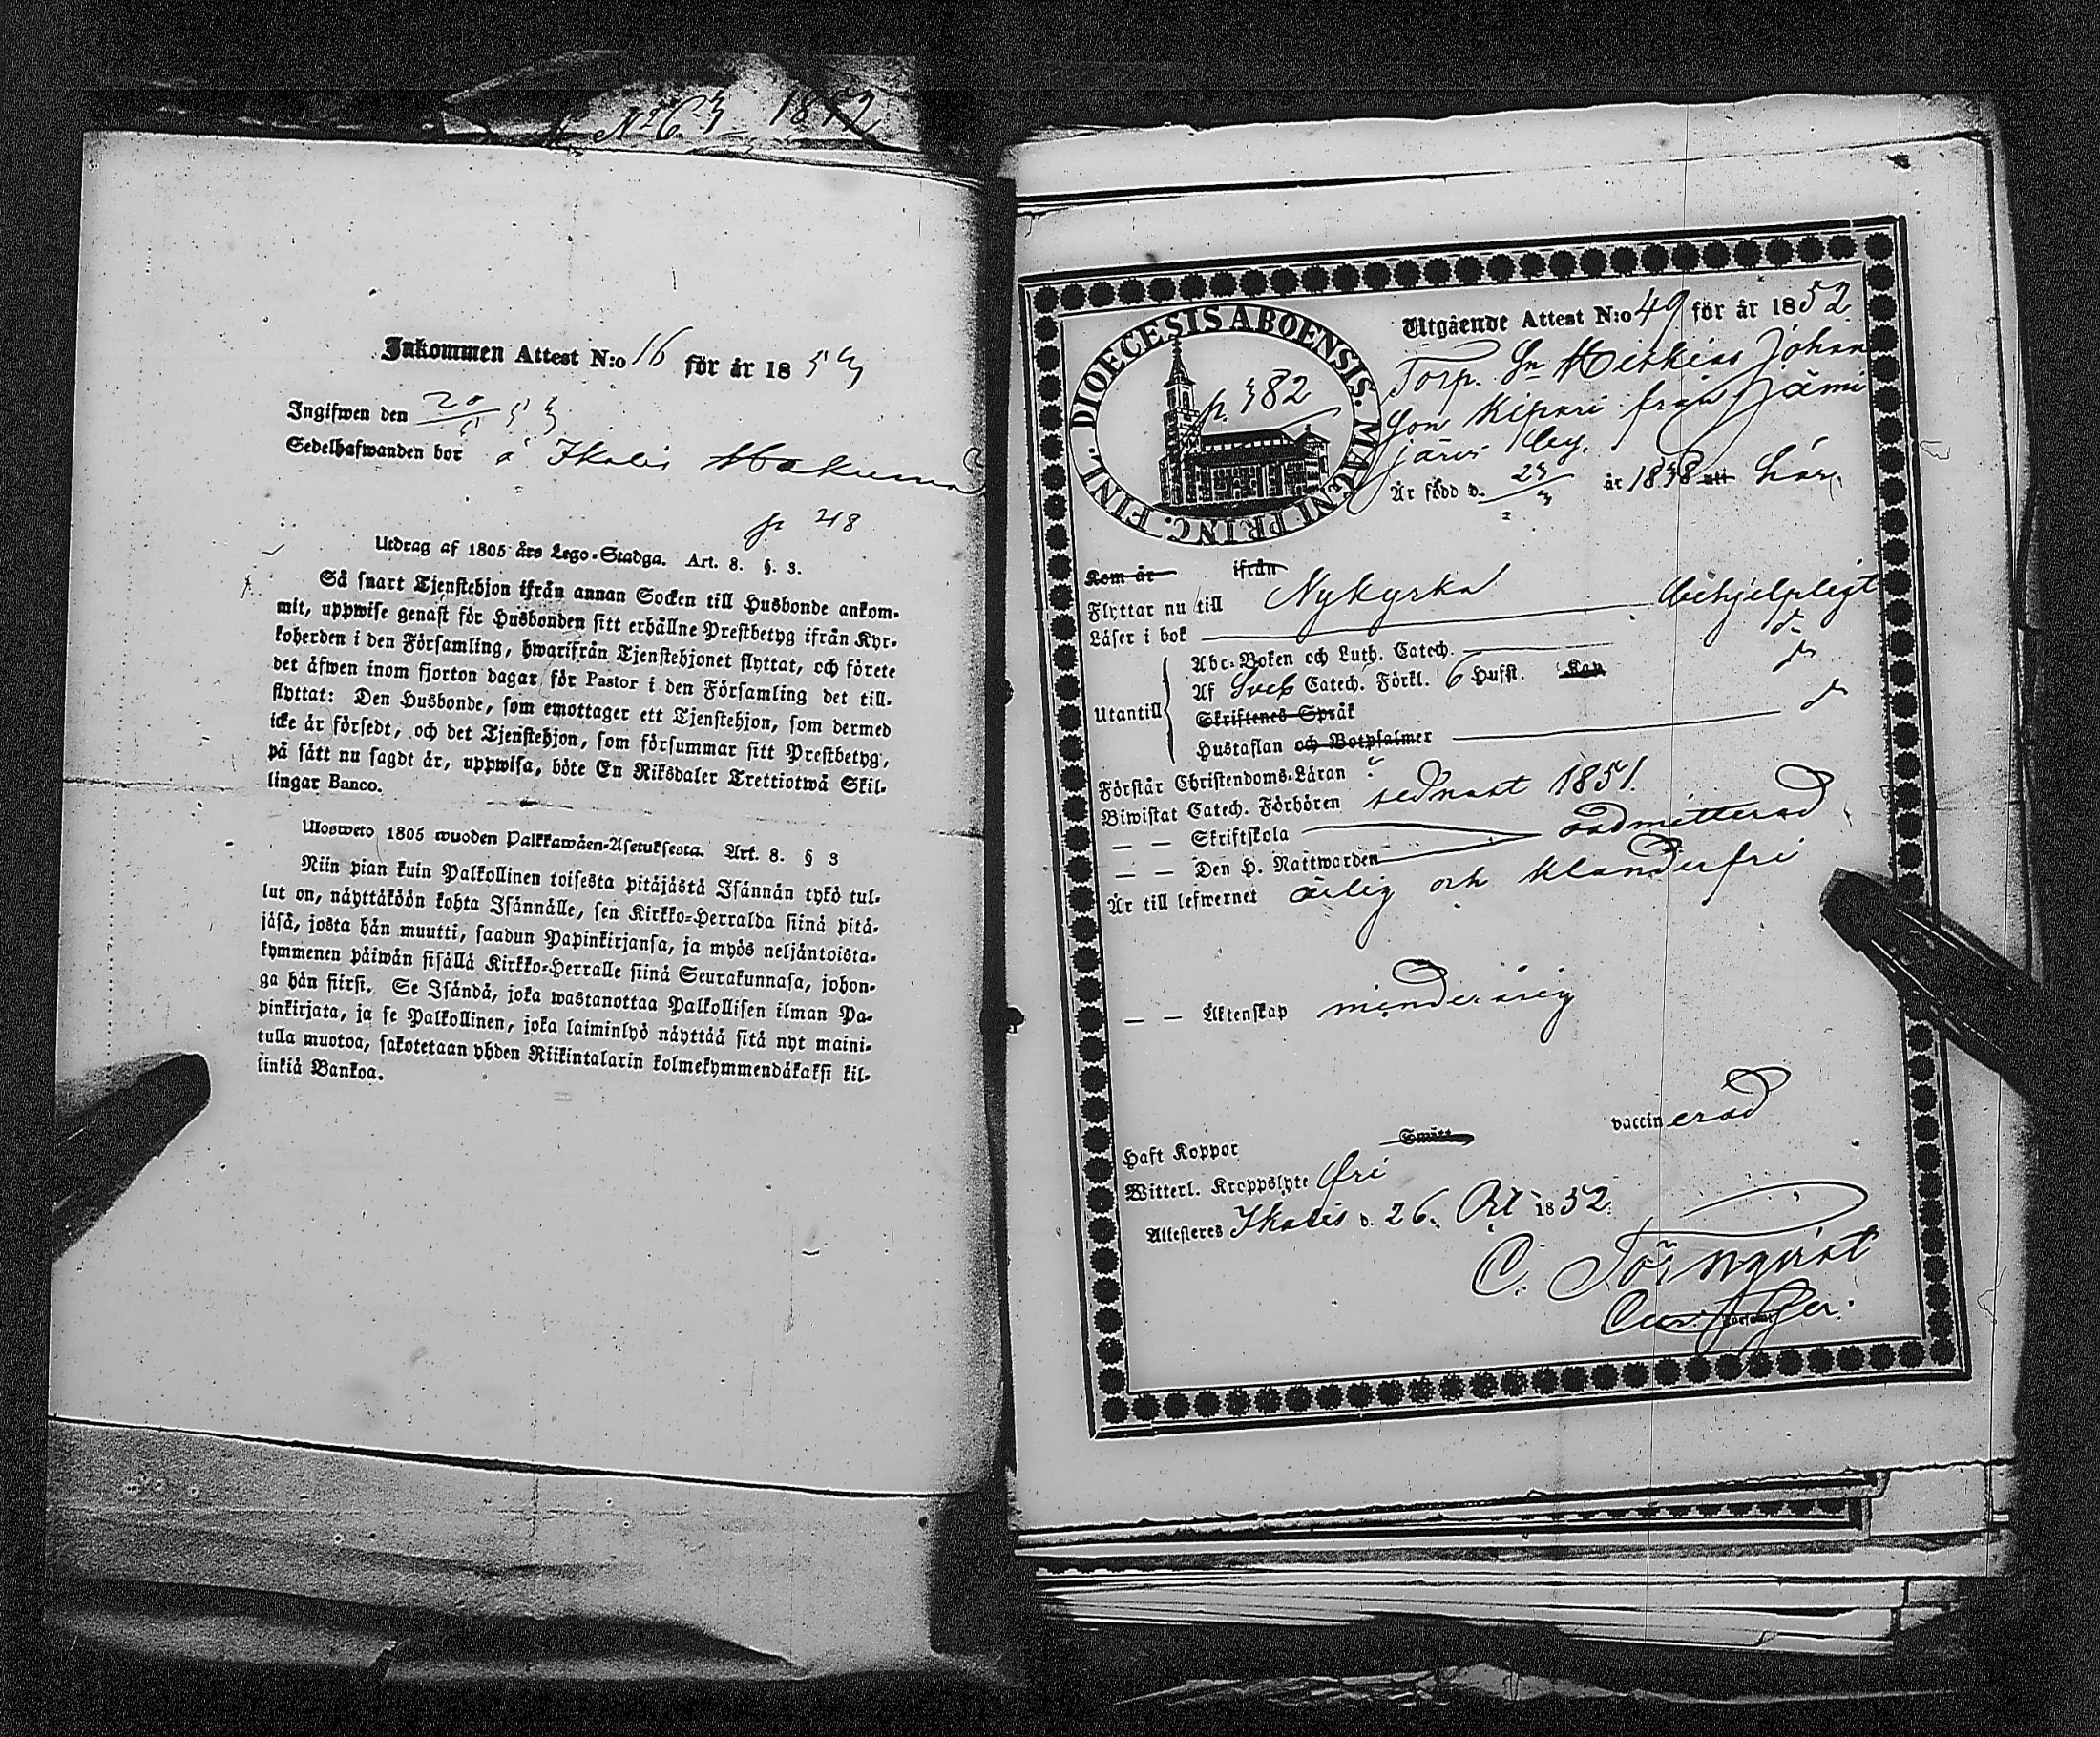 1852
Inkommen Attest N:o 16 för år 1853
Ingifwen den 20/5 53
Sedelhafwanden bor å Ikalis
p 48
Utdrag af 1805 års Lego-Stadga. Art. 8. §. 3.
Så snart Tjenstehjon ifrån annan Socken till Husbonde ankom-
mit, uppwise genast för Husbonden sitt erhållne Prestbetyg ifrån Kyr-
koherden i den Församling, hwarifrån Tjenstehjonet flyttat, och förete
det äfwen inom fjorton dagar för Pastor i den Församling det till-
flyttat: Den Husbonde, som emottager ett Tjenstehjon, som dermed
icke är försedt, och det Tjenstehjon, som försummar sitt Prestbetyg,
på sätt nu sagdt är, uppwisa, böte En Riksdaler Trettiotwå Skil-
lingar Banco.
Ulosweto 1805 wuoden Palkkawäen-Asetuksesta. Art. 8. § 3
Niin pian kuin Palkollinen toisesta pitäjästä Isännän tykö tul-
lut on, näyttäköön kohta Isännälle, sen Kirkko-Herralda siinä pitä-
jäsä, josta hän muutti, saadun Papinkirjansa, ja myös neljäntoista-
kymmenen päiwän sisällä Kirkko-Herralle siinä Seurakunnasa, johon-
ga hän siirsi. Se Isändä, joka wastanottaa Palkollisen ilman Pa-
pinkirjata, ja se Palkollinen, joka laiminlyö näyttää sitä nyt maini-
tulla muotoa, sakotetaan yhden Riikintalarin kolmekymmendäkaksi kil-
linkiä Bankoa.
DIOECESIS ABOENSIS. MAGNI PRINC. FINL.
p. 382
Utgående Attest N:o 49 för år 1852
Torp. Sn Johan
son från Jämi
järvi by.
Är född d. 23/3 år 1838 här.
Kom år ifrån
Flyttar nu till Nykyrka
Läser i bok behjelpligt
Utantill
Abc-Boken och Luth. Catech.
Af Sveb Catech. Förkl. 6 Hufst. Kap
Skriftenes Språk
Hustaflan och Botpsalmer
Förstår Christendoms-Läran
Biwistat Catech. Förhören sednast 1851.
— — Skriftskola
— — Den H. Nattwarden oadmitterad
Är till lefwernet ärlig och klanderfri
— — Äktenskap minderårig
Haft Koppor vaccinerad
Witterl. Kroppslyte fri
Attesteres Ikalis d. 26. Oct 1852.
C. Törnqvist